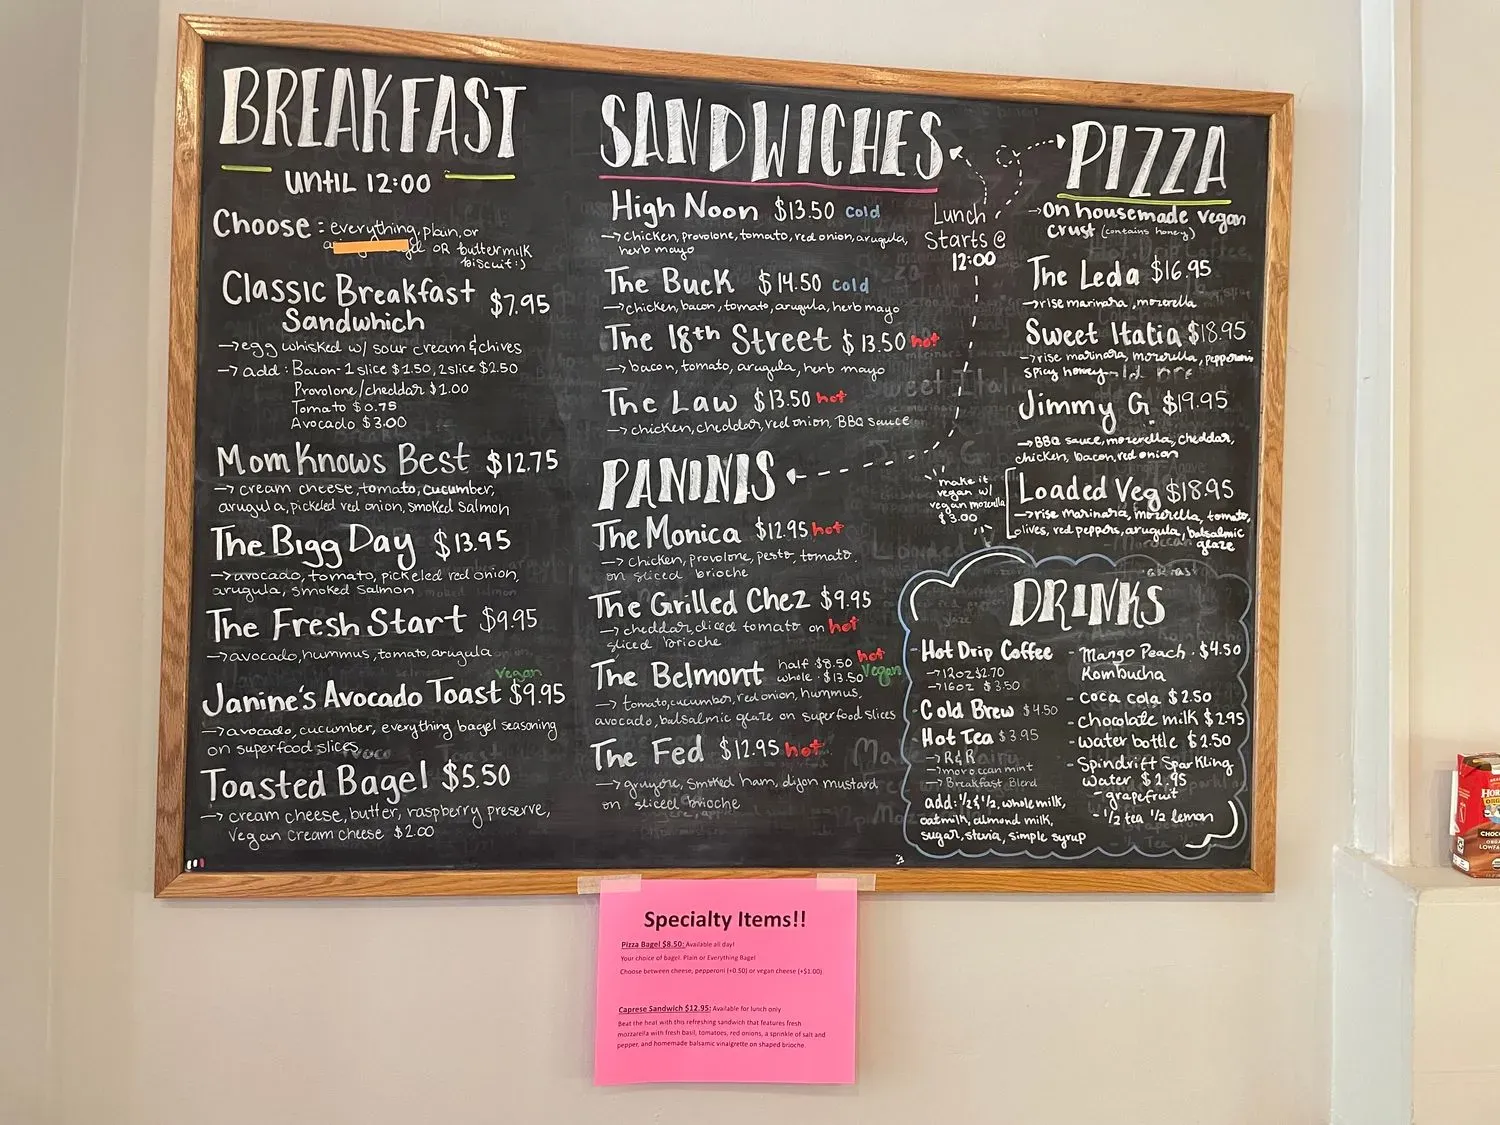 BREAKFAST
UNTIL 12:00
Choose: everything, plain, or
OR buttermilk
biscuit :)
Classic Breakfast
Sandwhich $7.95
→ egg whisked w/ sour cream & chives
→ add: Bacon-1 slice $1.50, 2 slice $2.50
Provolone/cheddar $1.00
Tomato $0.75
Avocado $3.00
Mom Knows Best $12.75
→ cream cheese, tomato, cucumber,
arugula, pickled red onion, smoked salmon
The Bigg Day $13.95
→ avocado, tomato, pickeled red onion,
arugula, smoked salmon
The Fresh Start $9.95
→ avocado, hummus, tomato, arugula
Vegan
Janine's Avocado Toast $9.95
→ avocado, cucumber, everything bagel seasoning
on superfood slices
Toasted Bagel $5.50
→ cream cheese, butter, raspberry preserve,
vegan cream cheese $2.00
SANDWICHES
High Noon $13.50 cold
→ chicken, provolone, tomato, red onion, arugula,
herb mayo
The Buck $14.50 cold
→ chicken, bacon, tomato, arugula, herb mayo
The 18th Street $13.50 hot
→ bacon, tomato, arugula, herb mayo
The Law $13.50 hot
→ chicken, cheddar, red onion, BBQ sauce
Lunch
Starts @
12:00
PANINIS
The Monica $12.95 hot
→ chicken, provolone, pesto, tomato
on sliced brioche
The Grilled Chez $9.95
→ cheddar, diced tomato on hot
sliced brioche
The Belmont half $8.50 hot
whole: $13.50 Vegan
→ tomato, cucumber, red onion, hummus,
avocado, balsalmic glaze on superfood slices
The Fed $12.95 hot
→ gruyere, smoked ham, dijon mustard
on sliced brioche
PIZZA
→ On housemade vegan
crust (contains honey)
The Leda $16.95
→ rise marinara, mozerella
Sweet Italia $18.95
→ rise marinara, mozerella, pepperoni
spicy honey
Jimmy G $19.95
→ BBQ sauce, mozerella, cheddar,
chicken, bacon, red onion
Loaded Veg $18.95
→ rise marinara, mozerella, tomato,
olives, red peppers, arugula, balsalmic
glaze
make it
vegan w/
vegan mozerella
$3.00
DRINKS
- Hot Drip Coffee
→ 12oz $2.70
→ 16oz $3.50
- Cold Brew $4.50
- Hot Tea $3.95
→ R&R
→ moroccan mint
→ Breakfast Blend
add: 1/2 & 1/2, whole milk,
oatmilk, almond milk,
sugar, stevia, simple syrup
- Mango Peach $4.50
Kombucha
- coca cola $2.50
- chocolate milk $2.95
- water bottle $2.50
- Spindrift Sparkling
water $2.95
- grapefruit
- 1/2 tea 1/2 lemon
Specialty Items!!
Pizza Bagel $8.50: Available all day!
Your choice of bagel: Plain or Everything Bagel
Choose between cheese, pepperoni (+0.50) or vegan cheese (+$1.00)
Caprese Sandwich $12.95: Available for lunch only
Beat the heat with this refreshing sandwich that features fresh
mozzarella with fresh basil, tomatoes, red onions, a sprinkle of salt and
pepper, and homemade balsamic vinaigrette on shaped brioche.